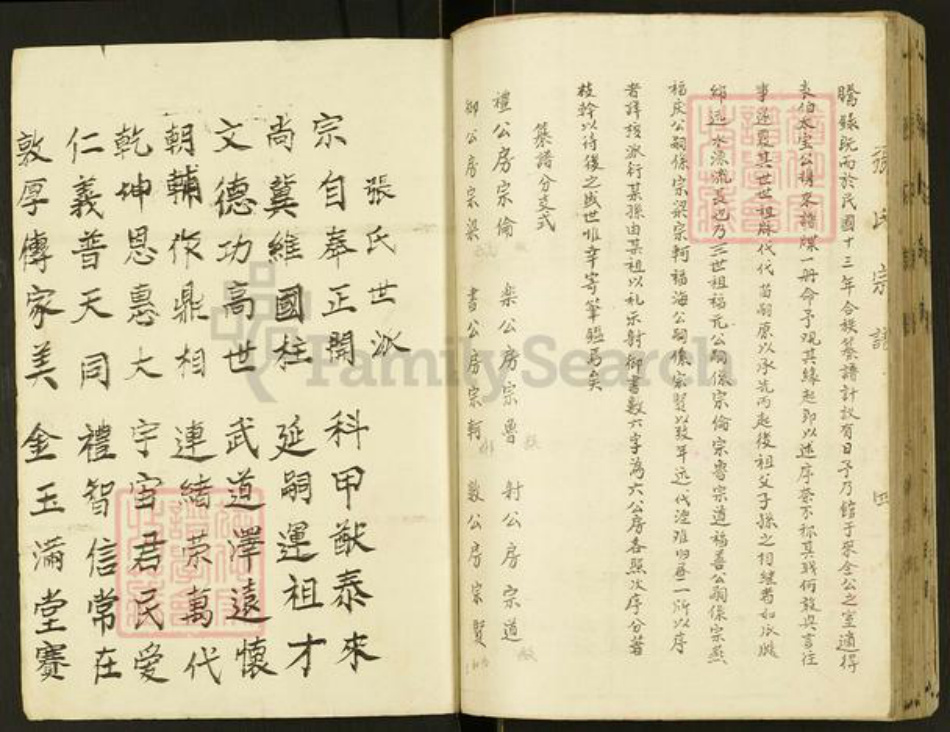 張氏宗譜 四
騰錄既而於民國十三年合族纂譜計議有日予乃館于聚全公之室適得
表伯太宝公構來譜牒一冊命予观其緣起即以述序荼不称其職何敢與言往
事遂覈其世世祖脉代代苗嗣原以承先而起後祖父子孫之相继者如瓜瓞
綿遠水源流長也乃三世祖福元公嗣係宗倫宗魯宗道福善公嗣係宗燕
福庆公嗣係宗梁宗軻福海公嗣係宗賢以致年远代湮难归尋一所以序
者詳核派衍某孫由某祖以礼乐射御書数六字為六公房各照次序分著
枝幹以待後之盛世惟幸等筆驅焉矣
纂譜分支式
禮公房宗倫 樂公房宗魯 射公房宗道
御公房宗梁 書公房宗軻 數公房宗賢
張氏世派
宗自奉正開 科甲猷泰來
尚冀維國柱 延嗣運祖才
文德功高世 武道澤遠懷
朝輔作鼎相 連緒荣萬代
乾坤恩惠大 宇宙君民愛
仁義普天同 禮智信常在
敦厚傳家美 金玉滿堂賽
FamilySearch